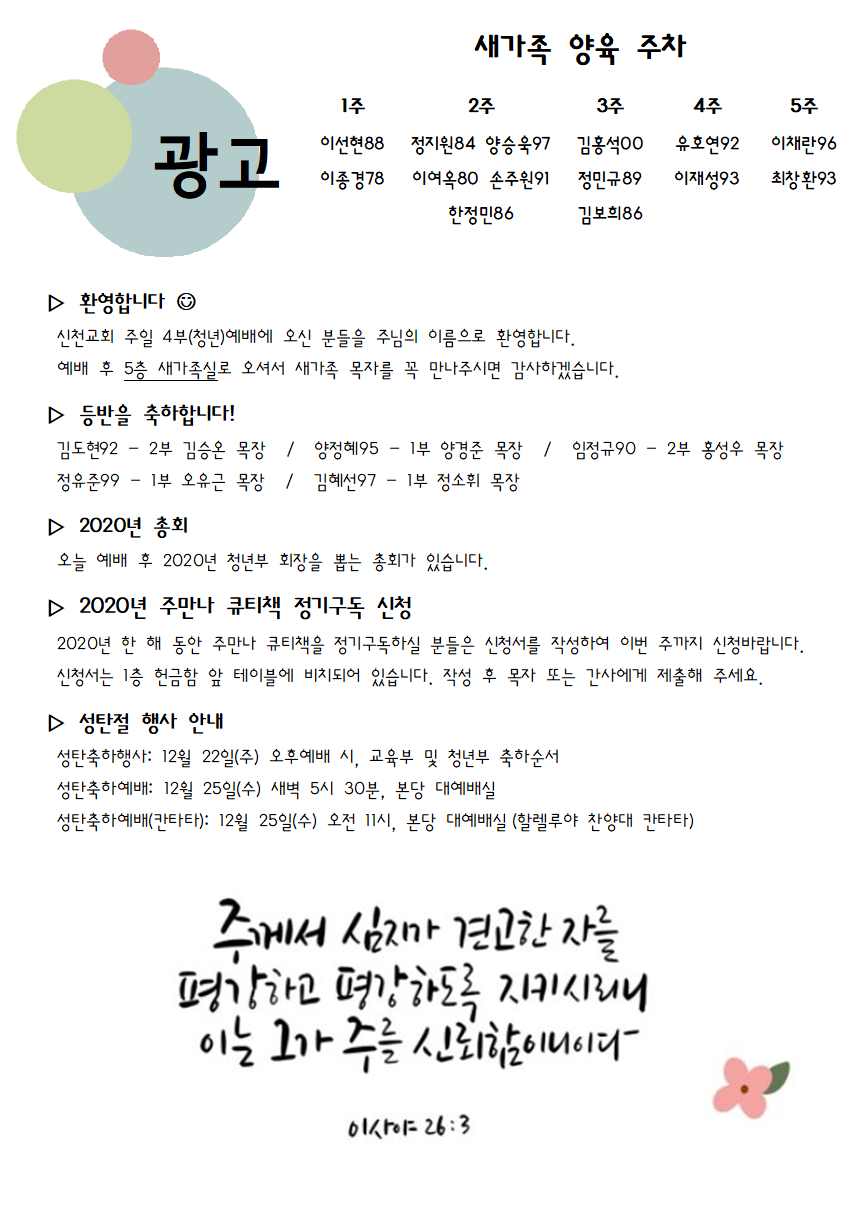 광고
새가족 양육 주차
1주 2주 3주 4주 5주
이선현88 정지원84 양승욱97 김홍석00 유호연92 이채란96
이종경78 이여옥80 손주원91 정민규89 이재성93 최창환93
한정민86 김보희86
▷ 환영합니다 ☺
신천교회 주일 4부(청년)예배에 오신 분들을 주님의 이름으로 환영합니다.
예배 후 5층 새가족실로 오셔서 새가족 목자를 꼭 만나주시면 감사하겠습니다.
▷ 등반을 축하합니다!
김도현92 - 2부 김승온 목장 / 양정혜95 - 1부 양경준 목장 / 임정규90 - 2부 홍성우 목장
정유준99 - 1부 오유근 목장 / 김혜선97 - 1부 정소휘 목장
▷ 2020년 총회
오늘 예배 후 2020년 청년부 회장을 뽑는 총회가 있습니다.
▷ 2020년 주만나 큐티책 정기구독 신청
2020년 한 해 동안 주만나 큐티책을 정기구독하실 분들은 신청서를 작성하여 이번 주까지 신청바랍니다.
신청서는 1층 헌금함 앞 테이블에 비치되어 있습니다. 작성 후 목자 또는 간사에게 제출해 주세요.
▷ 성탄절 행사 안내
성탄축하행사: 12월 22일(주) 오후예배 시, 교육부 및 청년부 축하순서
성탄축하예배: 12월 25일(수) 새벽 5시 30분, 본당 대예배실
성탄축하예배(칸타타): 12월 25일(수) 오전 11시, 본당 대예배실 (할렐루야 찬양대 칸타타)
주께서 심지가 견고한 자를
평강하고 평강하도록 지키시리니
이는 그가 주를 신뢰함이니이다-
이사야 26:3